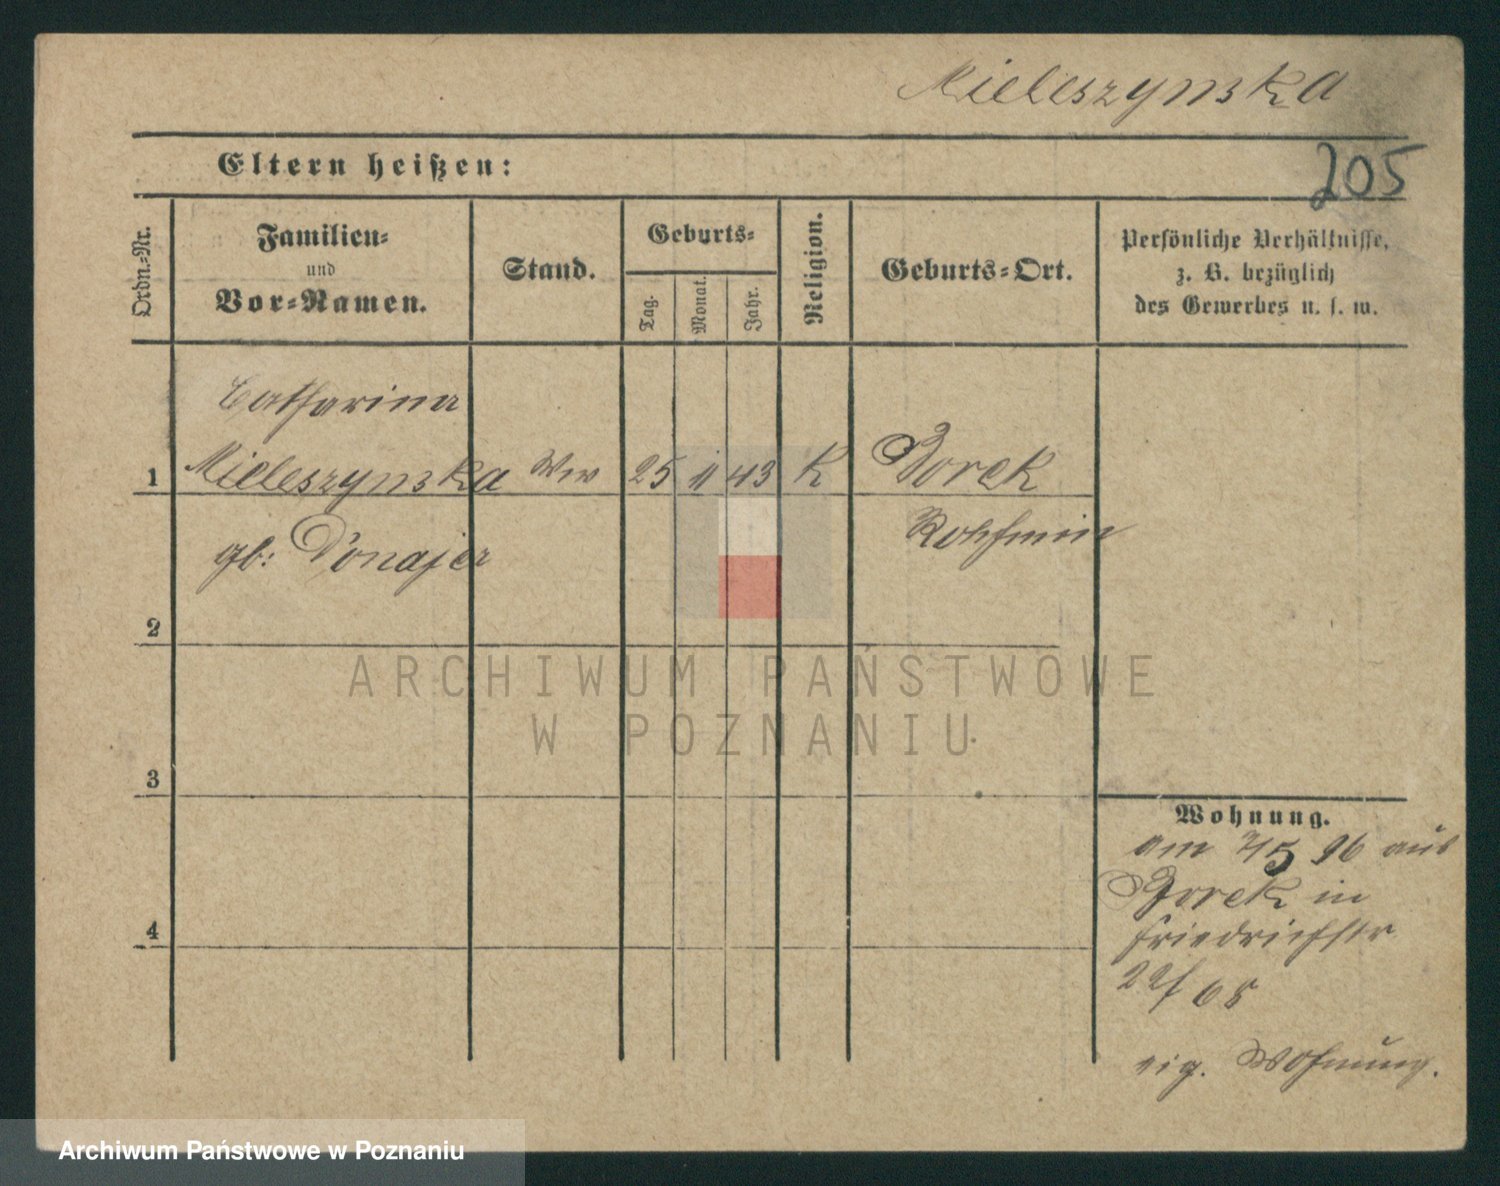 Mieleszynska
205
Eltern heißen:
Ordn.-Nr.
Familien-
und
Vor-Namen.
Stand.
Geburts-
Tag.
Monat.
Jahr.
Religion.
Geburts-Ort.
Persönliche Verhältnisse,
z. B. bezüglich
des Gewerbes u. s. w.
Catharina
1 Mieleszynska Ww 25 11 43 K Borek
gb: Donajer
2
3
4
Wohnung.
am 7/5 96 aus
Borek in
Friedrichstr
22/65
eig. Wohnung.
ARCHIWUM PAŃSTWOWE
W POZNANIU
Archiwum Państwowe w Poznaniu